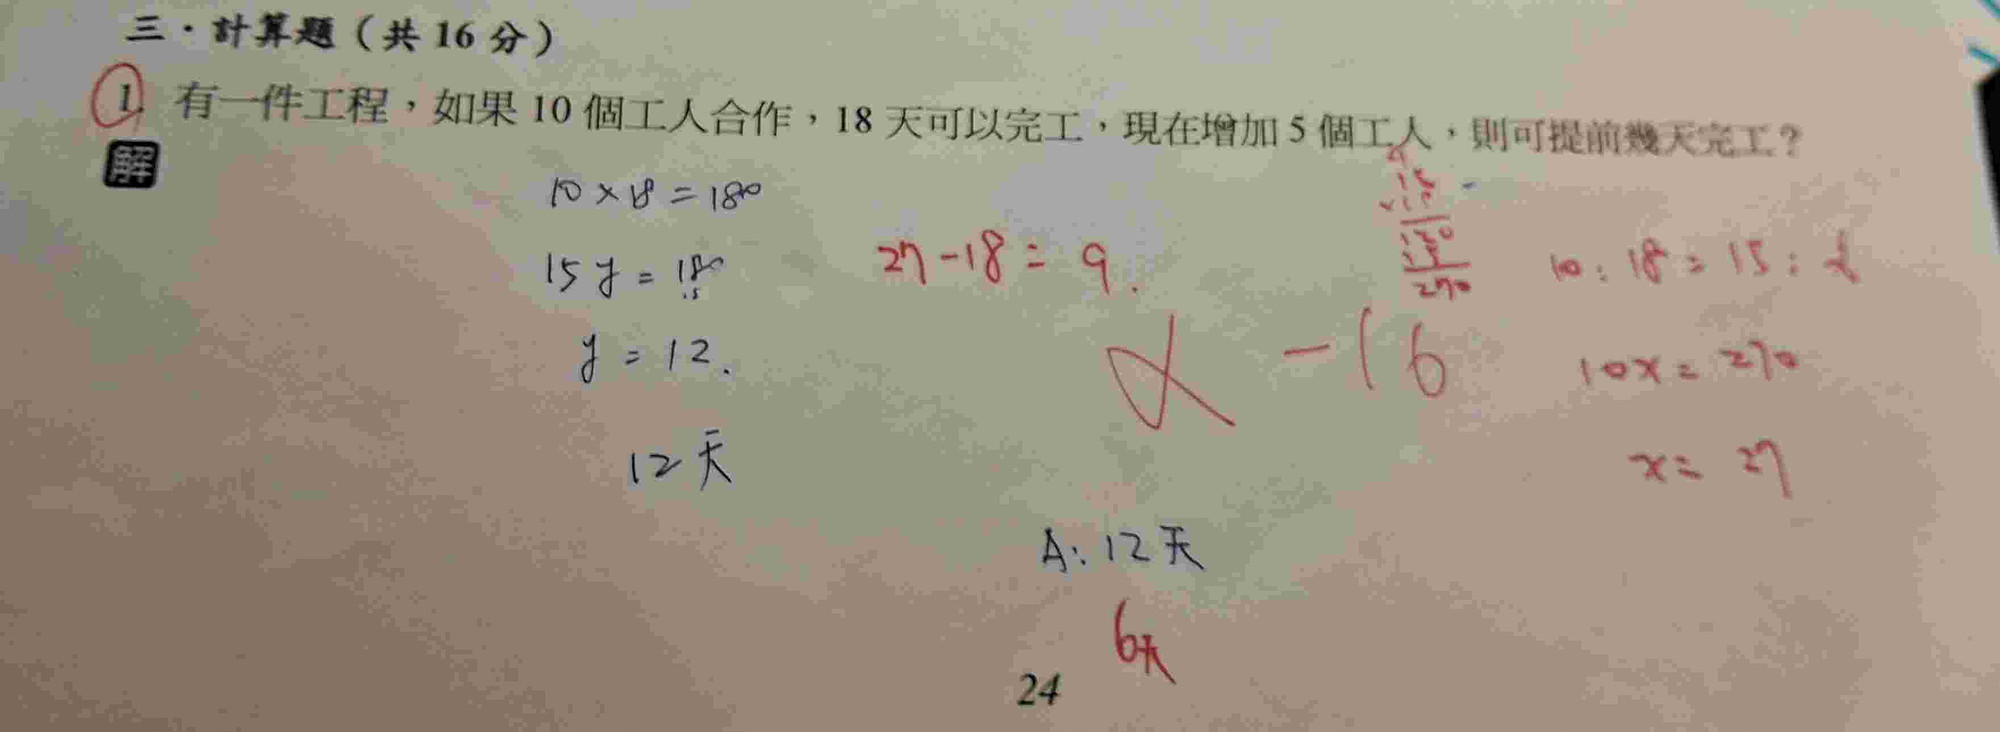 三·計算題（共 16 分）
1. 有一件工程，如果 10 個工人合作，18 天可以完工，現在增加 5 個工人，則可提前幾天完工？
解
10 × 18 = 180
15 y = 180
15
y = 12.
12 天
27 - 18 = 9.
270
-16
10 : 18 = 15 :
10x = 270
x = 27
A: 12 天
6天
24